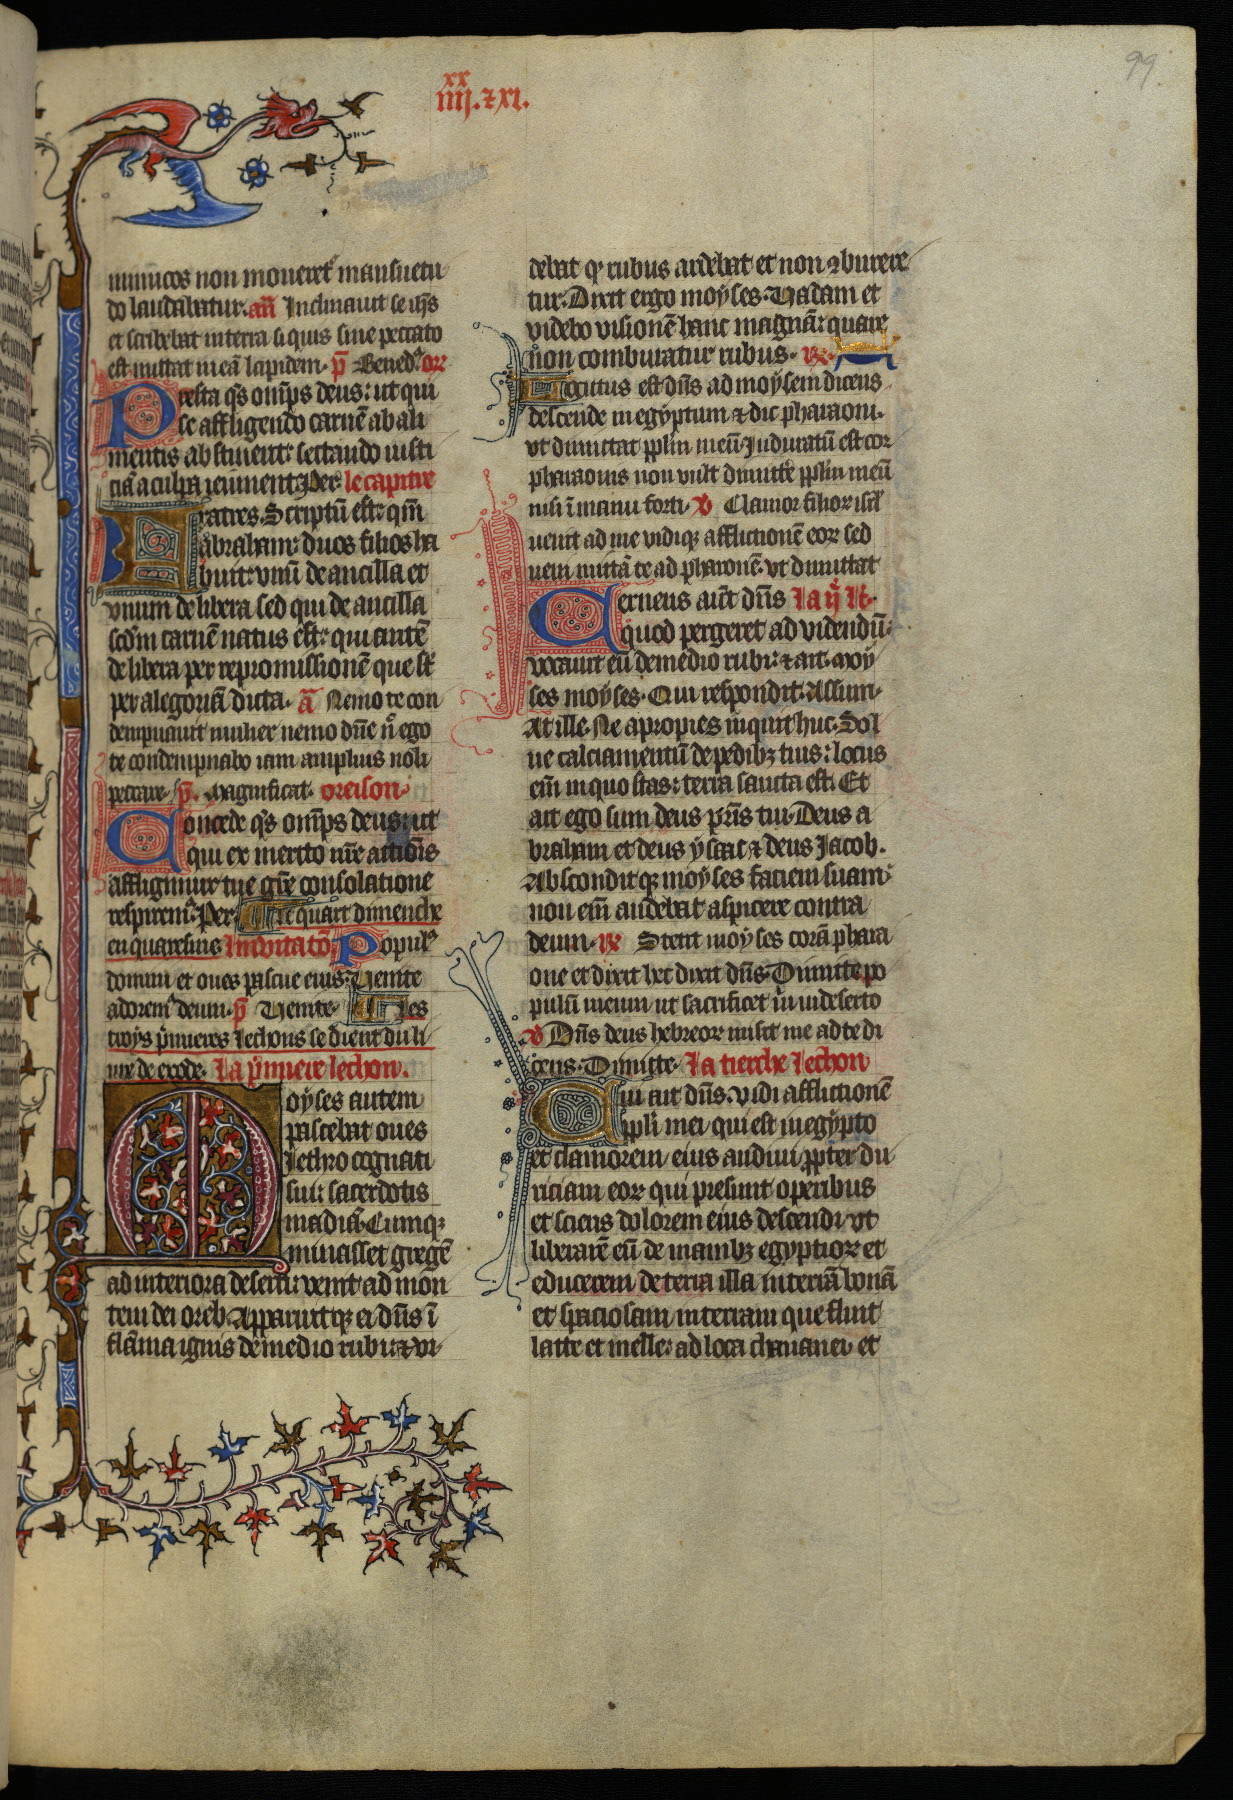 99
xx
iiij. ⁊ xi.
inimicos non moueret᷑ mansuetu
do laudabatur. an̄ Inclinauit se ih̄s
et scribebat in terra si quis sine peccato
est mittat in eā lapidem. p̄ Bened᷑. or̄
Presta q̄s om̄ps deus: ut qui
se affligendo carnē ab ali
mentis abstinent: sectando iusti
ciā a culpa ieiunent. Per. le capitre
Fratres. Scriptū est: qm̄
abraham duos filios ha
buit: vnū de ancilla et
vnum de libera sed qui de ancilla
scd̄m carnē natus est: qui autē
de libera per repromissionē que st̄
per alegoriā dicta. ā Nemo te con
dempnauit mulier nemo dn̄e n̄ ego
te condempnabo iam amplius noli
peccare. p̄. Magnificat. oreison.
Concede q̄s om̄ps deus: ut
qui ex merito nr̄e actiōis
affligimur tue gr̄e consolatione
respirem᷑. Per. Le quart dimenche
en quaresme Inuitatō Popul᷑
domini et oues pascue eius: Uenite
adorem᷑ deum. p̄ Uenite. Les
troys p̄mieres lechons se dient du li
ure de exode. La p̄miere lechon.
Moyses autem
pascebat oues
Jethro cognati
sui: sacerdotis
madiā. Cumqꝫ
minasset gregē
ad interiora deserti: venit ad mon
tem dei oreb. Apparuitqꝫ ei dn̄s ī
flāma ignis de medio rubi: ⁊ vi
debat qꝫ rubus ardebat et non ꝯburere
tur. Dixit ergo moyses. Uadam et
videbo visionē hanc magnā: quare
non comburatur rubus. rx.
Locutus est dn̄s ad moysem dicens
descende in egyptum ⁊ dic pharaoni.
vt dimittat pplm̄ meū. Induratū est cor
pharaonis non vult dimitte᷑ pplm̄ meū
nisi ī manu forti. v Clamor filioꝝ isr̄l
uenit ad me vidiqꝫ afflictionē eoꝝ sed
ueni mittā te ad pharaonē vt dimittat
Cernens aut̄ dn̄s La ij. le.
quod pergeret ad videndū:
vocauit eū de medio rubi: ⁊ ait. Moy
ses moyses. Qui respondit. Assum.
At ille. Ne apropies inquit huc. Sol
ue calciamentū de pedibꝫ tuis: locus
em̄ in quo stas: terra sancta est. Et
ait ego sum deus pr̄is tui. Deus a
braham et deus ysaac ⁊ deus Jacob.
Abscondit qꝫ moyses faciem suam:
non em̄ audebat aspicere contra
deum. rx Stetit moyses corā phara
one et dixit hec dixit dn̄s. Dimitte po
pulū meum ut sacrificet m̄ in deserto
v Dn̄s deus hebreoꝝ misit me ad te di
cens. Dimitte. La tierche lechon
Cui ait dn̄s. vidi afflictionē
ppli mei qui est in egypto
et clamorem eius audiui ꝓpter du
riciam eoꝝ qui presunt operibus
et sciens dolorem eius descendi vt
liberarē eū de manibꝫ egyptioꝝ et
educerem de terra illa in terrā bonā
et spaciosam in terram que fluit
lacte et melle: ad loca chananei et